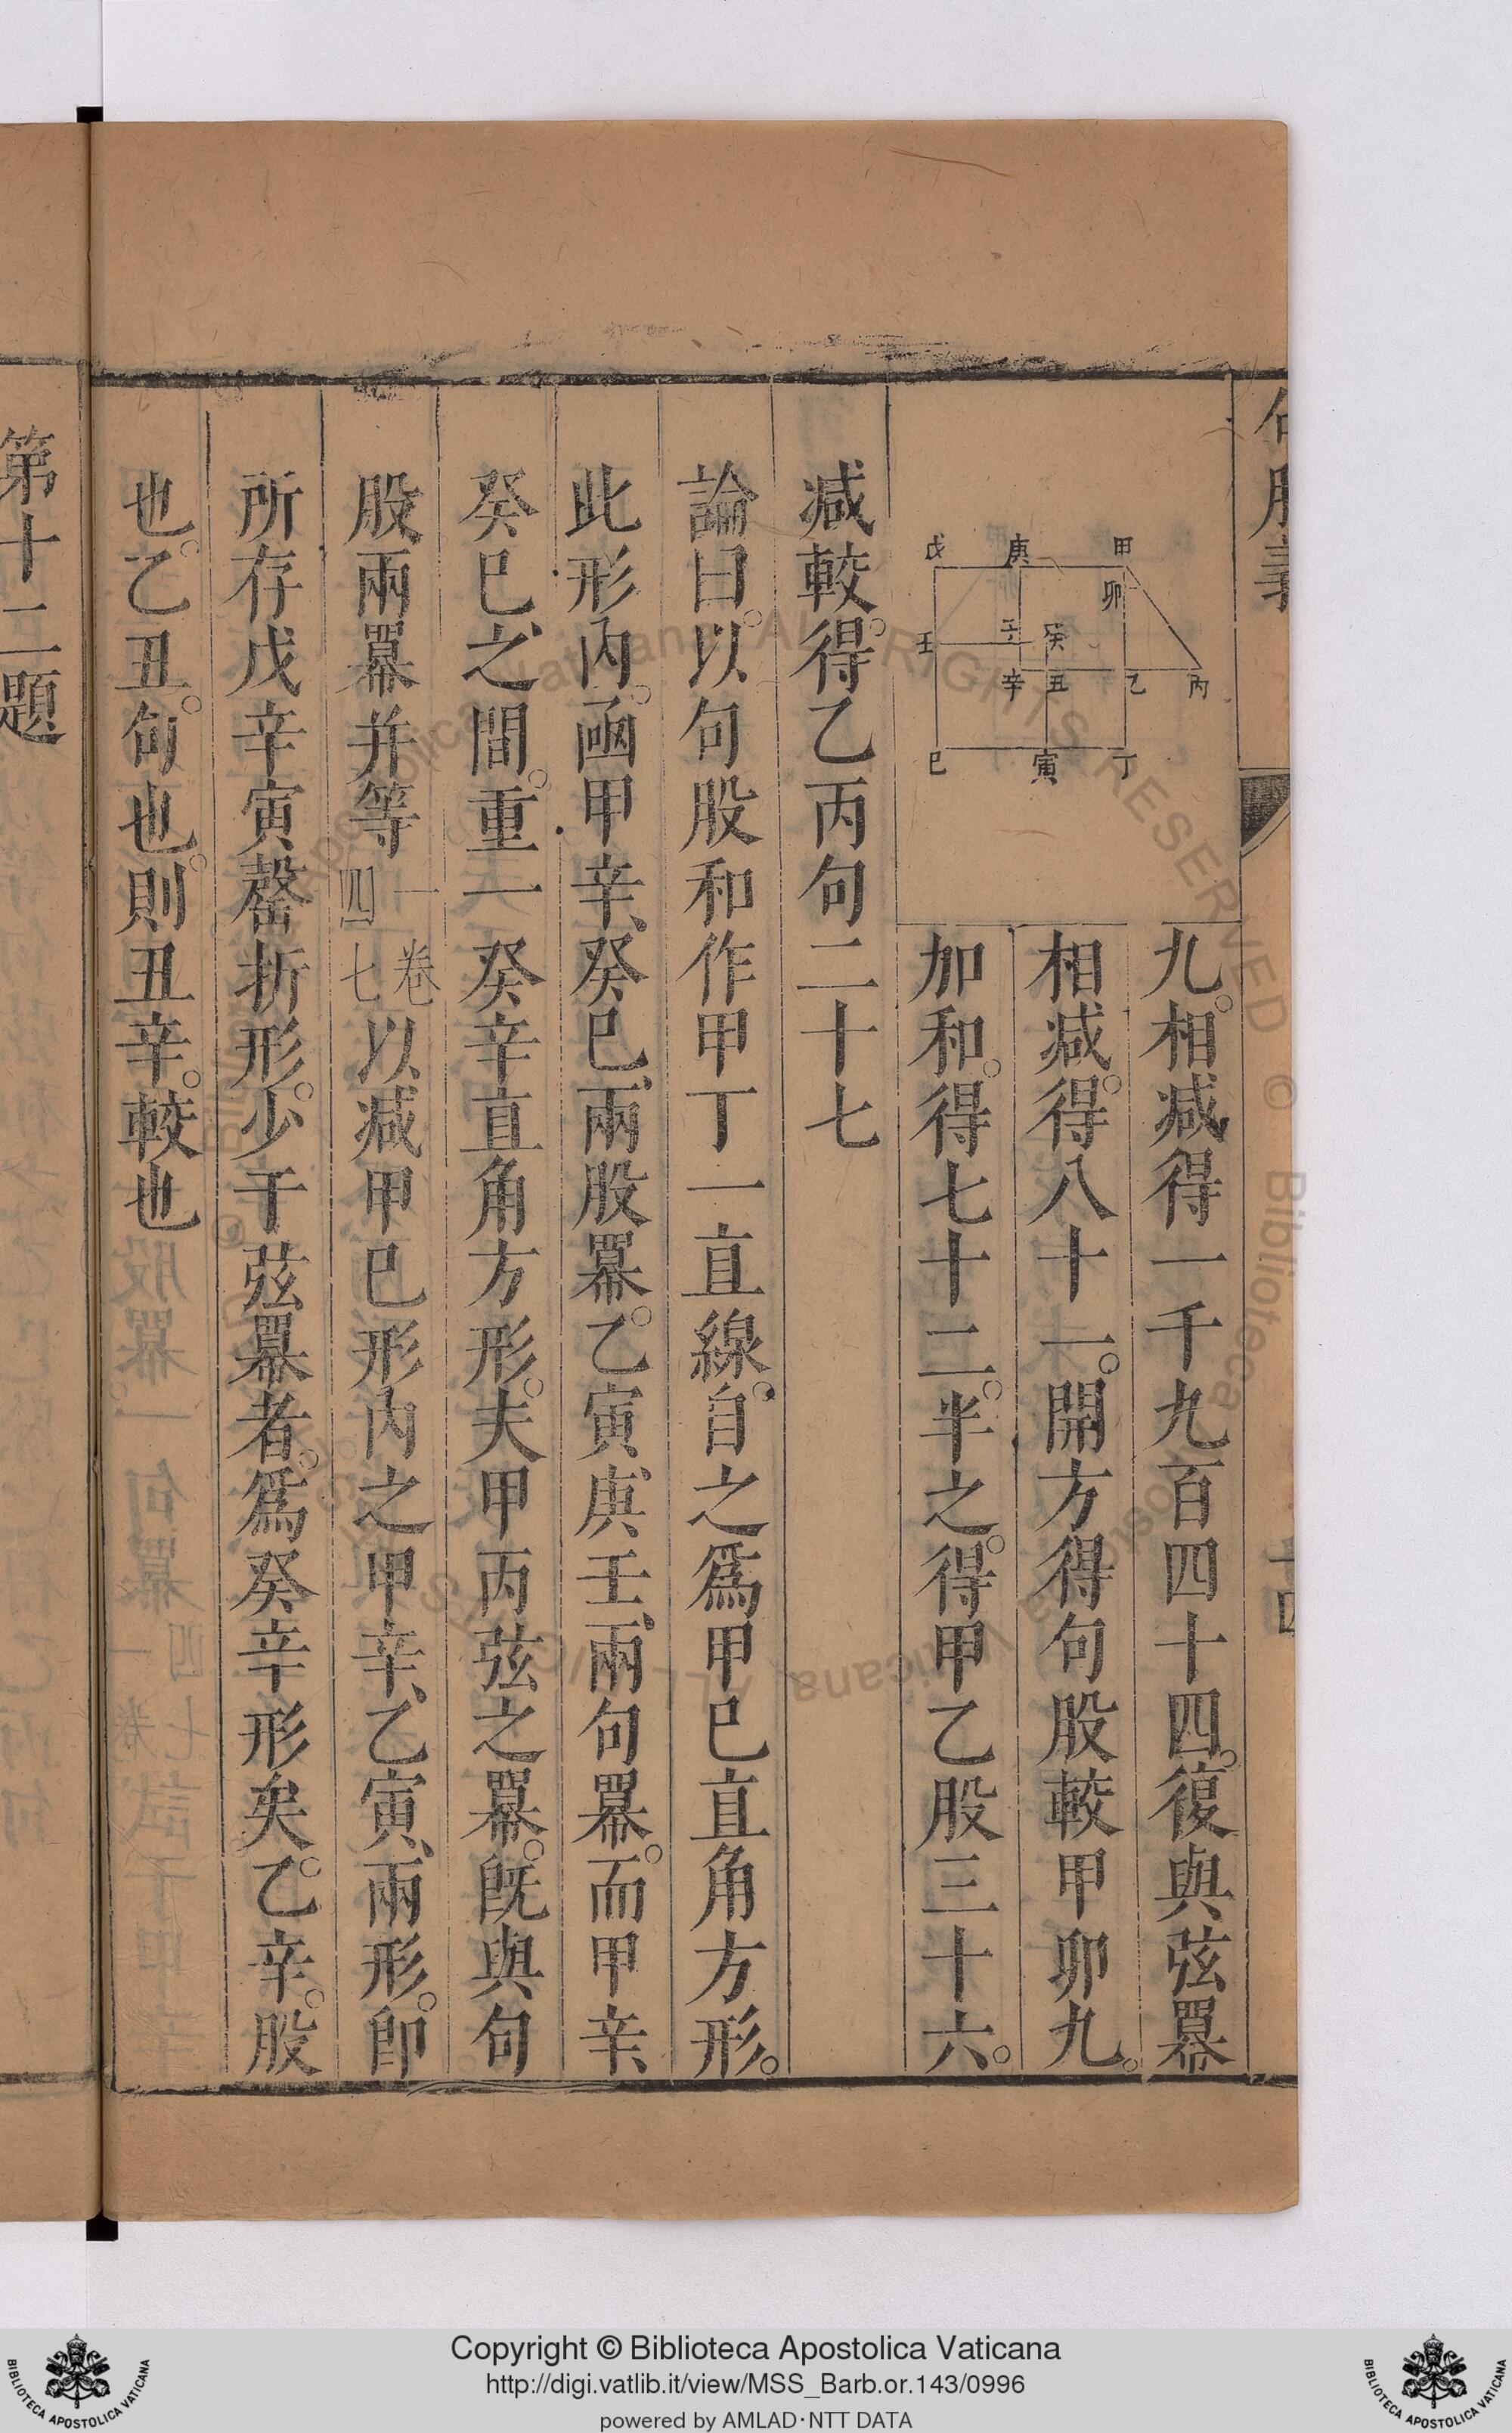 句股義
十四
戊 庚 甲
卯
壬 壬 癸
辛 丑 乙 丙
巳 寅 丁
九。相减得一千九百四十四。復與弦冪
相减。得八十一。開方得句股較甲卯九。
加和。得七十二。半之。得甲乙股三十六。
减較。得乙丙句二十七
論曰。以句股和作甲丁一直線。自之爲甲巳直角方形。
此形內。凾甲辛、癸巳、兩股冪。乙寅、庚壬、兩句冪。而甲辛、
癸巳、之間。重一癸辛直角方形。夫甲丙弦之冪。旣與句
股兩冪并等一卷四七以减甲巳形內之甲辛、乙寅、兩形。卽
所存戊辛寅罄折形。少于弦冪者。爲癸辛形矣。乙辛。股
也。乙丑。句也。則丑辛。較也
第十二題
Copyright © Biblioteca Apostolica Vaticana
http://digi.vatlib.it/view/MSS_Barb.or.143/0996
powered by AMLAD·NTT DATA
BIBLIOTECA APOSTOLICA VATICANA
BIBLIOTECA APOSTOLICA VATICANA